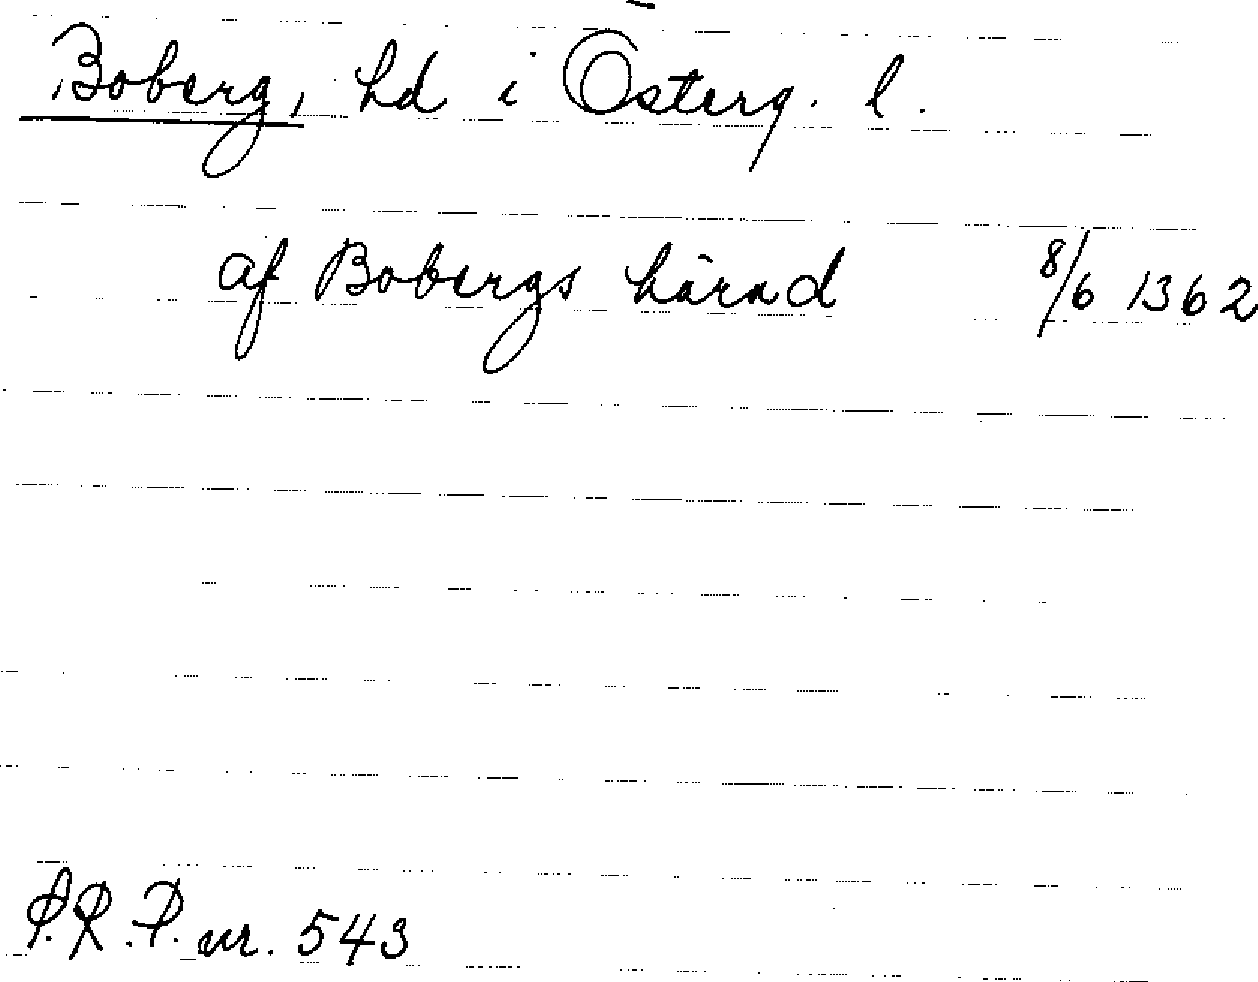 Boberg, hd i Österg. l.
af Bobergs härad 8/6 1362
S.R.P. nr. 543